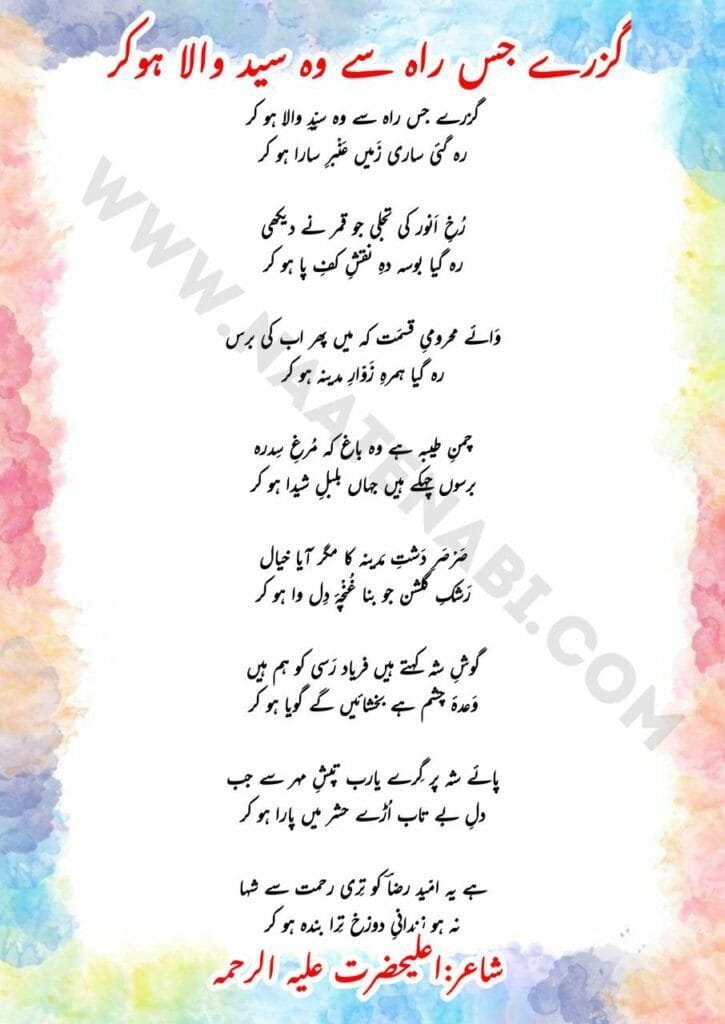 گزرے جس راہ سے وہ سید والا ہوکر
گزرے جس راہ سے وہ سیّدِ والا ہو کر
رہ گئی ساری زَمیں عَنْبرِ سارا ہو کر
رُخِ اَنور کی تجلی جو قمر نے دیکھی
رہ گیا بوسہ دہِ نقشِ کفِ پا ہو کر
وَائے محرومیِ قسمَت کہ میں پھر اب کی برس
رہ گیا ہمرہِ زَوّارِ مدینہ ہو کر
چمنِ طیبہ ہے وہ باغ کہ مُرغِ سِدرہ
برسوں چہکے ہیں جہاں بلبلِ شیدا ہو کر
صَرْصَرِ دَشتِ مدینہ کا مگر آیا خیال
رَشکِ گلشن جو بنا غُنْچَۂ دِل وا ہو کر
گوشِ شہ کہتے ہیں فریاد رَسی کو ہم ہیں
وَعدۂ چشم ہے بخشائیں گے گویا ہو کر
پائے شہ پر گِرے یارب تپشِ مہر سے جب
دلِ بے تاب اُڑے حشر میں پارا ہو کر
ہے یہ امّید رضاؔ کو تِری رحمت سے شہا
نہ ہو زِندانیِ دوزخ تِرا بندہ ہو کر
شاعر:اعلیحضرت علیہ الرحمہ
WWW.NAATENABI.COM